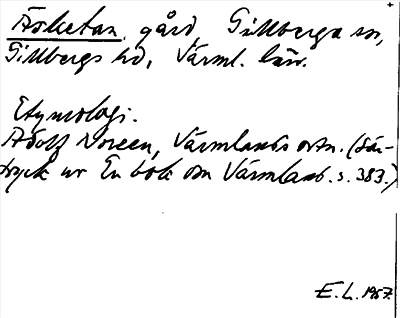 Åsketan, gård, Gillberga sn,
Gillbergs hd, Värml. län.
Etymologi.
Adolf Noreen, Värmlands ortn. (Sär-
tryck ur En bok om Värmland. s. 383.)
E. L. 1957.